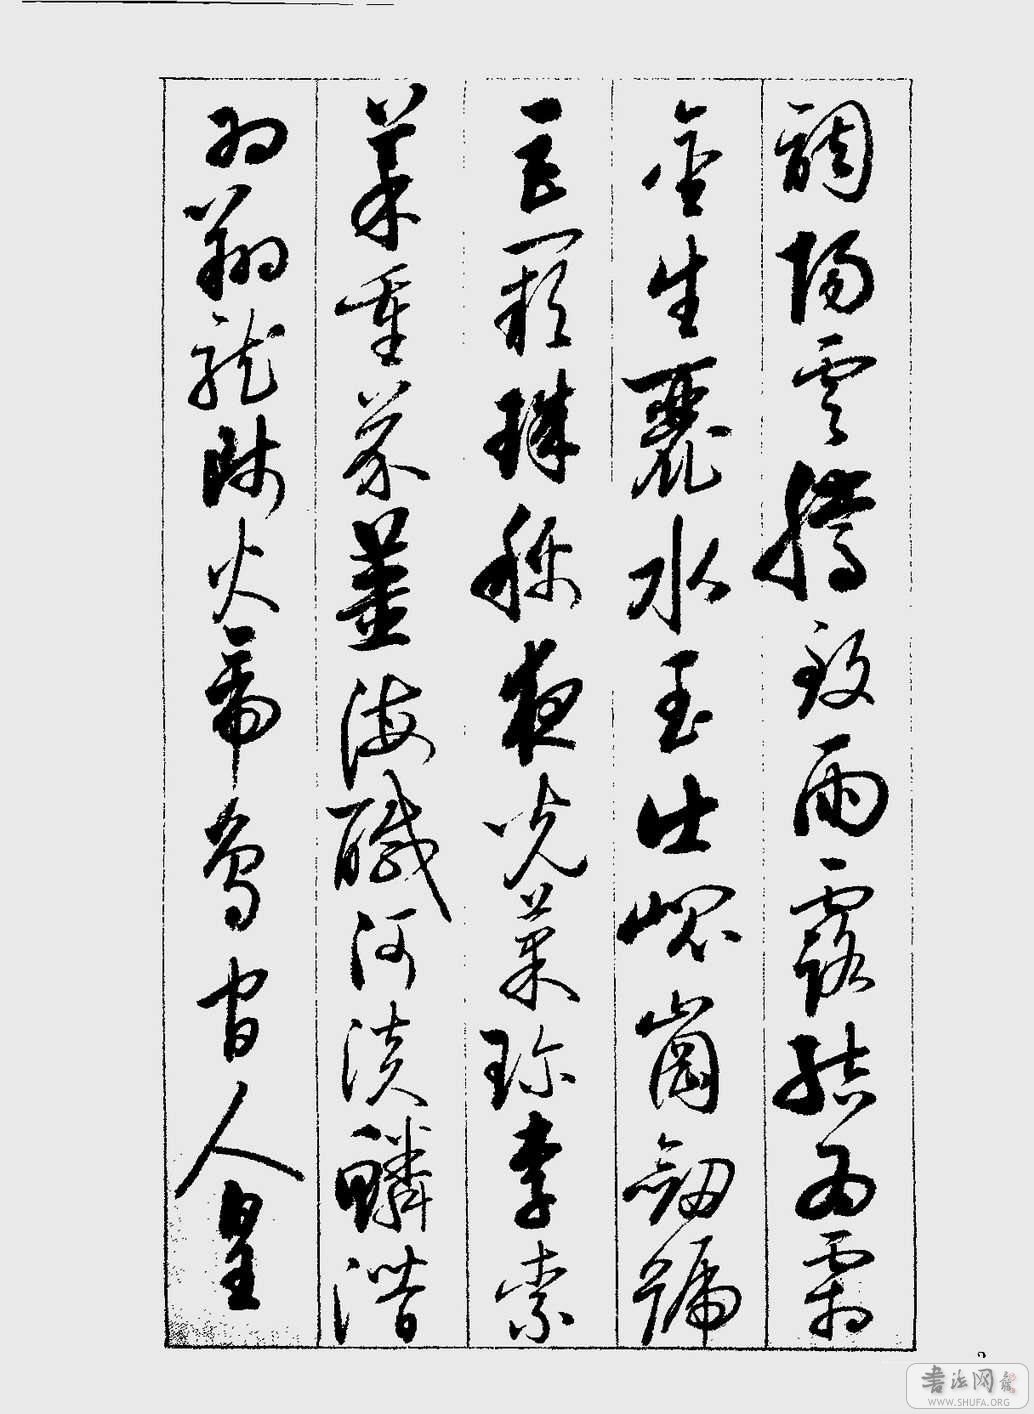 調陽雲騰致雨露結為霜
金生麗水玉出崐崗劍號
巨闕珠稱夜光菓珍李柰
菜重芥薑海醎河淡鱗潛
羽翔龍師火帝鳥官人皇
2
書法网
WWW.SHUFA.ORG